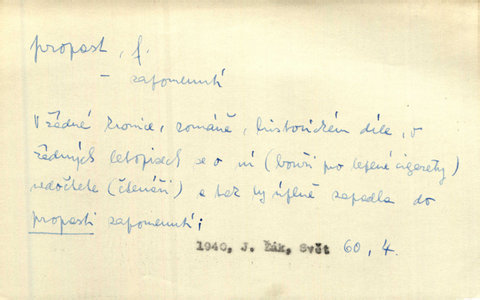 propast, f.
– zapomnění
V žádné kronice, románě, historickém díle, v
žádných letopisech se o ní (bouři pro letené cigarety)
nedočtete (čtenáři) a tak by úplně zapadla do
propasti zapomnění;
1940, J. Žák, Svět 60, 4.